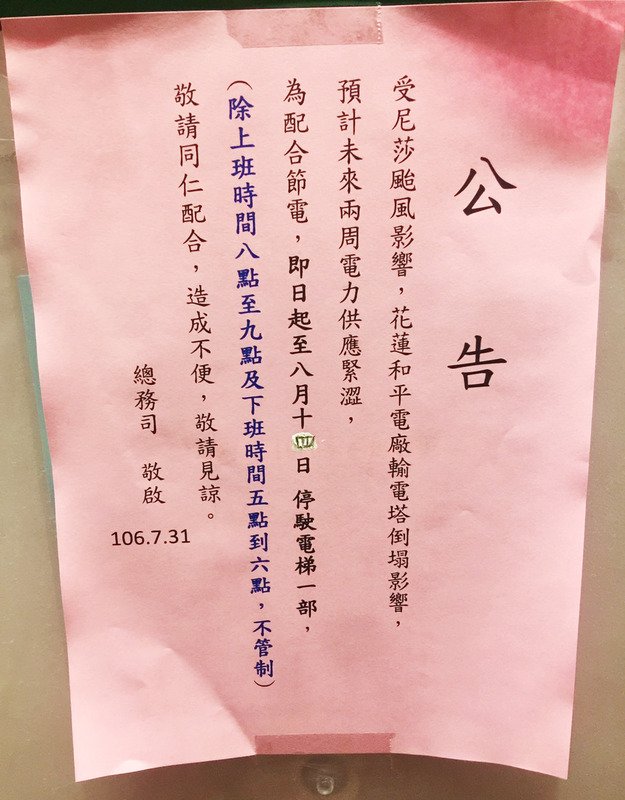 公告
受尼莎颱風影響，花蓮和平電廠輸電塔倒塌影響，
預計未來兩周電力供應緊澀，
為配合節電，即日起至八月十四日 停駛電梯一部，
（除上班時間八點至九點及下班時間五點到六點，不管制）
敬請同仁配合，造成不便，敬請見諒。
總務司 敬啟
106.7.31